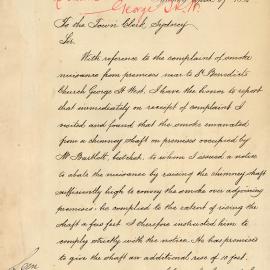 George St. W.
To the Town Clerk, Sydney
Sir
With reference to the complaint of smoke
nuisance from premises near to St Benedicts
Church George St West. I have the honor to report
that immediately on receipt of complaint I
visited and found that the smoke emanated
from a chimney shaft on premises occupied by
Mr Bartlett, to whom I issued a notice
to abate the nuisance by raising the chimney shaft
sufficiently high to convey the smoke over adjoining
premises: he complied to the extent of rising the
shaft a few feet I therefore instructed him to
comply strictly with the notice. He has promised
to give the shaft an additional rise of 10 feet.